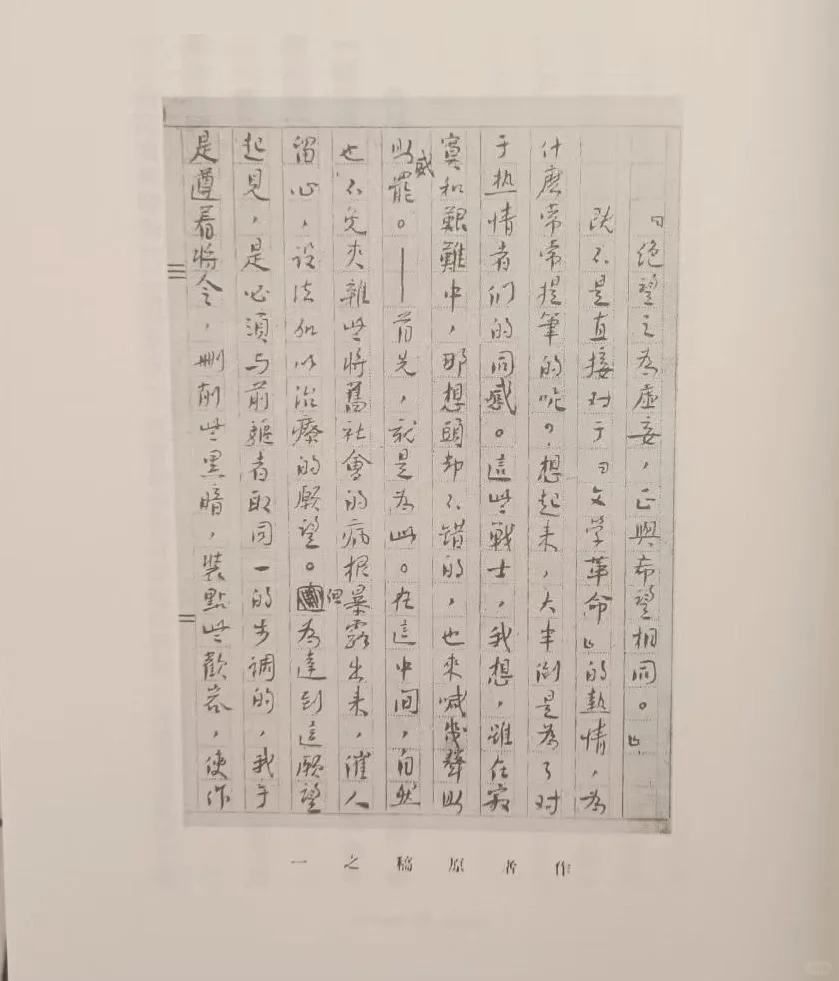 「绝望之為虛妄，正與希望相同。」
既不是直接对于「文学革命」的熱情，為
什麽常常提筆的呢？想起来，大半倒是為了对
于热情者们的同感。這些戰士，我想，雖在寂
寞和艱難中，那想頭却不错的，也來喊幾聲助
助威罷。——首先，就是為此。在這中间，自然
也不免夾雜些將舊社會的病根暴露出来，催人
留心，设法加以治療的願望。但為達到這願望
起見，是必須与前驅者取同一的步调的，我于
是遵着将令，删削些黑暗，装點些歡容，使作
作者原稿之一